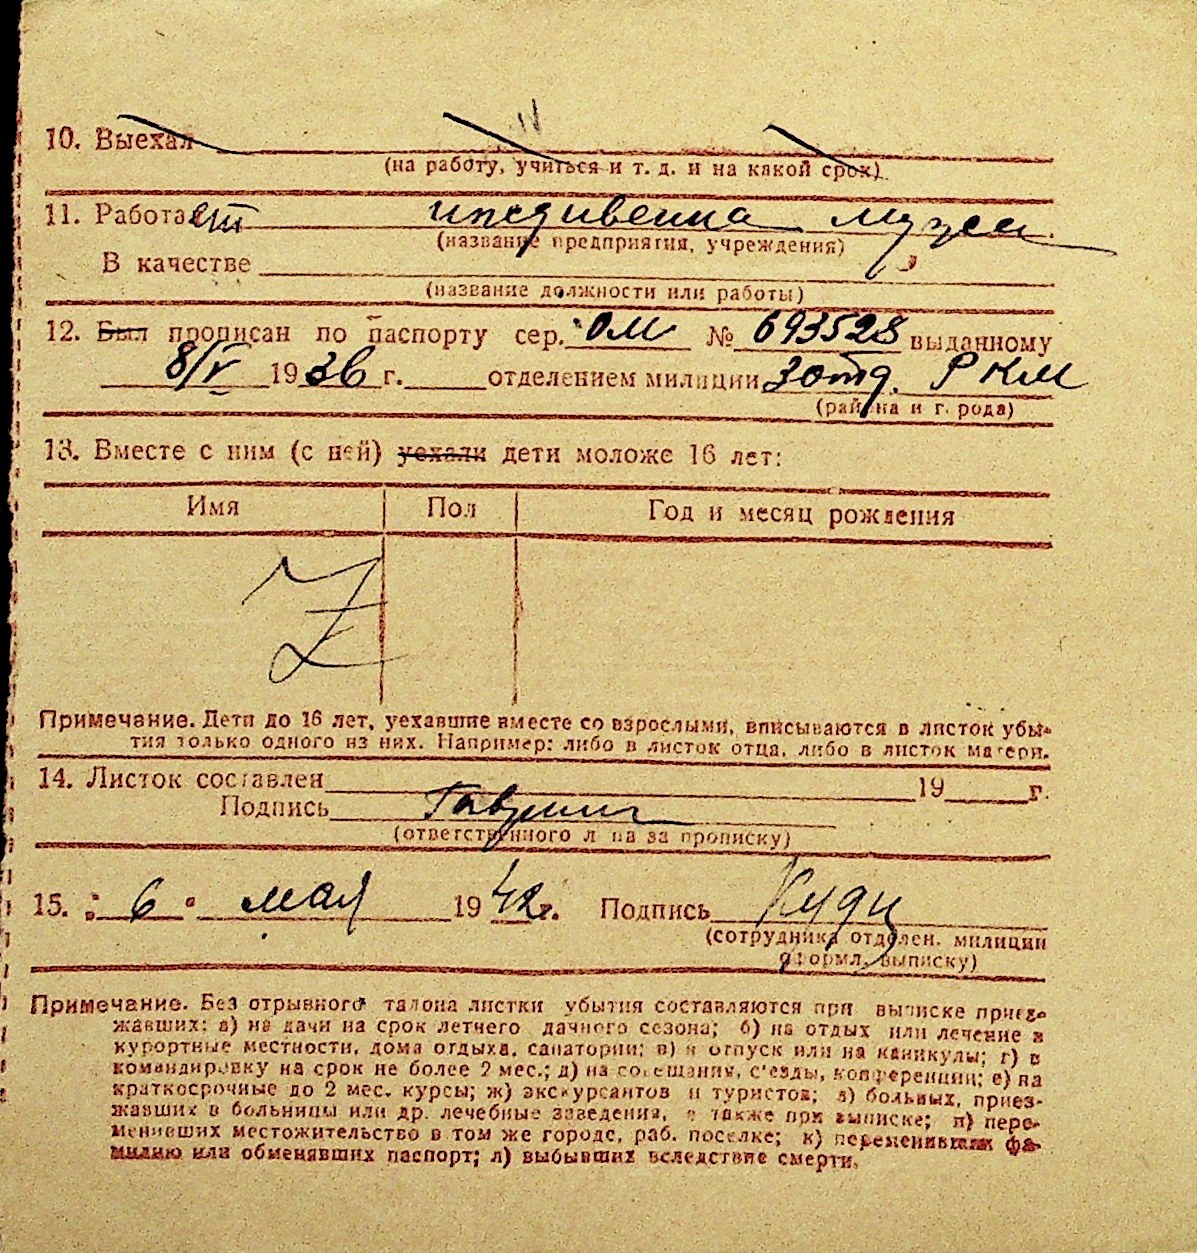 10. Выехал
(на работу, учиться и т. д. и на какой срок)
11. Работает иждивенка мужа
(название предприятия, учреждения)
В качестве
(название должности или работы)
12. Был прописан по паспорту сер. ОМ № 693528 выданному
8/V 1936 г. отделением милиции 3 отд. РКМ
(района и города)
13. Вместе с ним (с ней) уехали дети моложе 16 лет:
Имя Пол Год и месяц рождения
Z
Примечание. Дети до 16 лет, уехавшие вместе со взрослыми, вписываются в листок убы-
тия только одного из них. Например: либо в листок отца, либо в листок матери.
14. Листок составлен 19 г.
Подпись
(ответственного лица за прописку)
15. " 6 " мая 1942 г. Подпись
(сотрудника отделен. милиции
оформл. выписку)
Примечание. Без отрывного талона листки убытия составляются при выписке приез-
жавших: а) на дачи на срок летнего дачного сезона; б) на отдых или лечение в
курортные местности, дома отдыха, санатории; в) в отпуск или на каникулы; г) в
командировку на срок не более 2 мес.; д) на совещания, с'езды, конференции; е) на
краткосрочные до 2 мес. курсы; ж) экскурсантов и туристов; з) больных, приез-
жавших в больницы или др. лечебные заведения, а также при выписке; и) пере-
менивших местожительство в том же городе, раб. поселке; к) переменивших фа-
милию или обменявших паспорт; л) выбывших вследствие смерти.